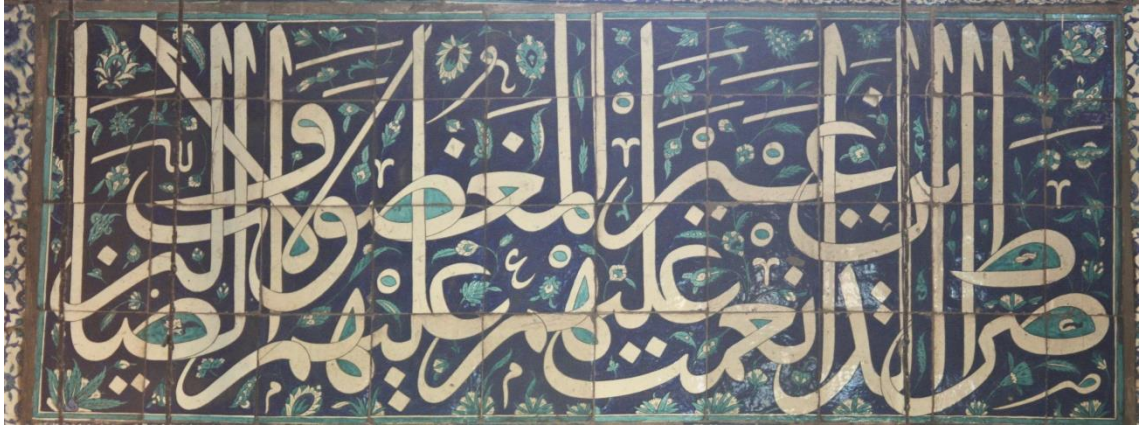 صراط الذين أنعمت عليهم غير المغضوب عليهم ولا الضالين